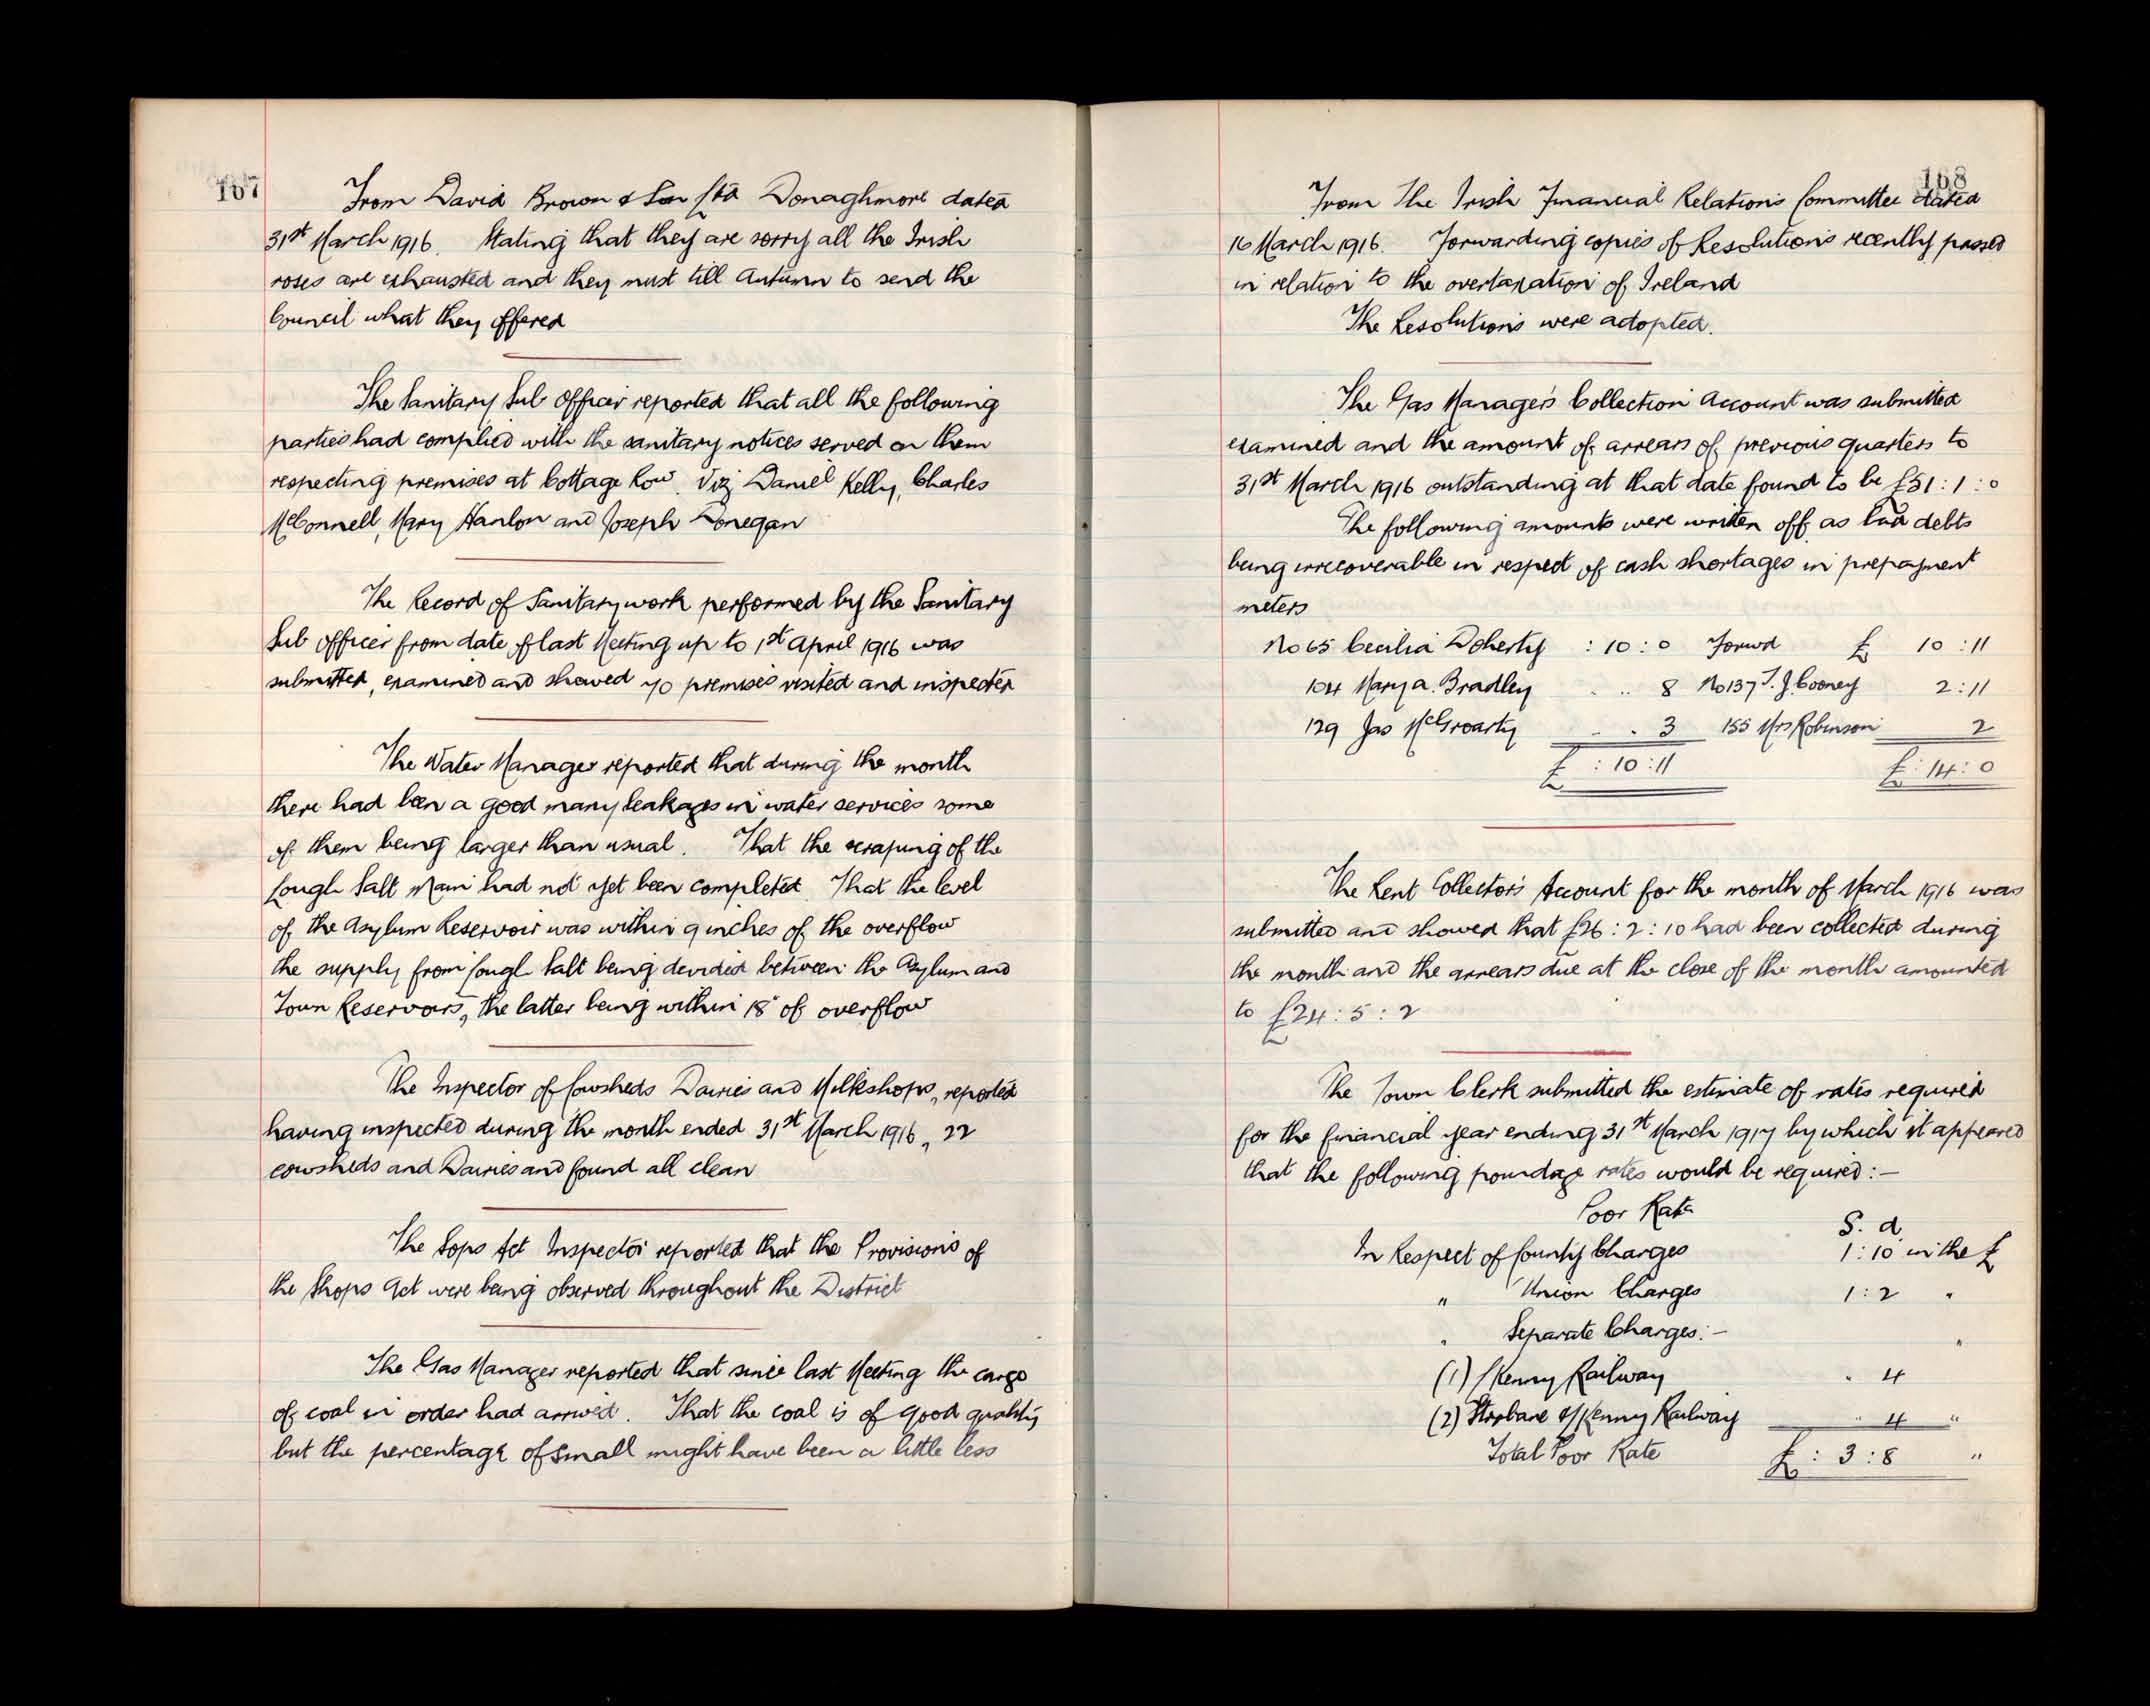 167
From David Brown & Son Ltd Donaghmore dated
31st March 1916. Stating that they are sorry all the Irish
roses are exhausted and they must till Autumn to send the
Council what they offered
The Sanitary Sub Officer reported that all the following
parties had complied with the sanitary notices served on them
respecting premises at Cottage Row. Viz Daniel Kelly, Charles
McConnell, Mary Hanlon and Joseph Donegan
The Record of Sanitary work performed by the Sanitary
Sub Officer from date of last Meeting up to 1st April 1916 was
submitted, examined and showed 70 premises visited and inspected
The Water Manager reported that during the month
there had been a good many leakages in water services some
of them being larger than usual. That the scraping of the
Lough Salt Main had not yet been completed. That the level
of the Asylum Reservoir was within 9 inches of the overflow
the supply from Lough Salt being devided between the Asylum and
Town Reservoirs, the latter being within 18" of overflow
The Inspector of Cowsheds Dairies and Milkshops, reported
having inspected during the month ended 31st March 1916, 22
cowsheds and Dairies and found all clean
The Sops Act Inspector reported that the Provisions of
the Shops Act were being observed throughout the District
The Gas Manager reported that since last Meeting the cargo
of coal in order had arrived. That the coal is of good quality
but the percentage of small might have been a little less
168
From The Irish Financial Relations Committee dated
16 March 1916. Forwarding copies of Resolutions recently passed
in relation to the overtaxation of Ireland
The Resolutions were adopted.
The Gas Manager's Collection Account was submitted
examined and the amount of arrears of previous quarters to
31st March 1916 outstanding at that date found to be £51:1:0
The following amounts were written off as bad debts
being irrecoverable in respect of cash shortages in prepayment
meters
No 65 Cecilia Doherty : 10 : 0 Forwd £ 10 : 11
104 Mary A. Bradley . .. 8 No 137 T. J. Cooney 2 : 11
129 Jas McGroarty . . 3 155 Mrs Robinson 2
£ : 10 : 11 £ : 14 : 0
The Rent Collector's Account for the month of March 1916 was
submitted and showed that £26 : 2 : 10 had been collected during
the month and the arrears due at the close of the month amounted
to £24 : 5 : 2
The Town Clerk submitted the estimate of rates required
for the financial year ending 31st March 1917 by which it appeared
that the following poundage rates would be required:—
Poor Rate
S. d.
In Respect of County Charges 1 : 10 in the £
" Union Charges 1 : 2 "
" Separate Charges:— "
(1) L/Kenny Railway " 4
(2) Strabane & L/Kenny Railway " 4 "
Total Poor Rate £ : 3 : 8 "